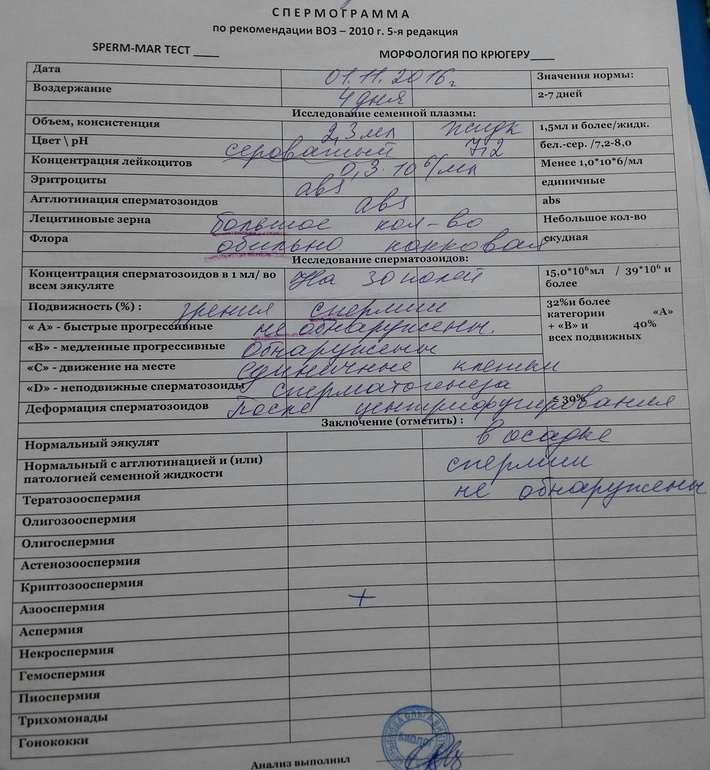 СПЕРМОГРАММА
по рекомендации ВОЗ – 2010 г. 5-я редакция
SPERM-MAR ТЕСТ ____ МОРФОЛОГИЯ ПО КРЮГЕРУ____
Дата 01.11.2016г Значения нормы:
Воздержание 4 дня 2-7 дней
Исследование семенной плазмы:
Объем, консистенция 2,3 мл жидк 1,5мл и более/жидк.
Цвет \ pH сероватый 7,2 бел.-сер. /7,2-8,0
Концентрация лейкоцитов 0,3·10⁶/мл Менее 1,0*10⁶/мл
Эритроциты abs единичные
Агглютинация сперматозоидов abs abs
Лецитиновые зерна большое кол-во Небольшое кол-во
Флора обильно кокковая скудная
Исследование сперматозоидов:
Концентрация сперматозоидов в 1 мл/ во всем эякуляте На 30 полей 15,0*10⁶мл / 39*10⁶ и более
Подвижность (%) : зрения спермии 32%и более категории «А» + «В» и 40% всех подвижных
« А» - быстрые прогрессивные не обнаружены.
«В» - медленные прогрессивные Обнаружены
«С» - движение на месте единичные клетки
«D» - неподвижные сперматозоиды сперматогенеза
Деформация сперматозоидов После центрифугирования ≤ 30%
Заключение (отметить) :
Нормальный эякулят в осадке
Нормальный с агглютинацией и (или) патологией семенной жидкости спермии
не обнаружены
Тератозооспермия
Олигозооспермия
Олигоспермия
Астенозооспермия
Криптозооспермия
Азооспермия +
Аспермия
Некроспермия
Гемоспермия
Пиоспермия
Трихомонады
Гонококки
Анализ выполнил